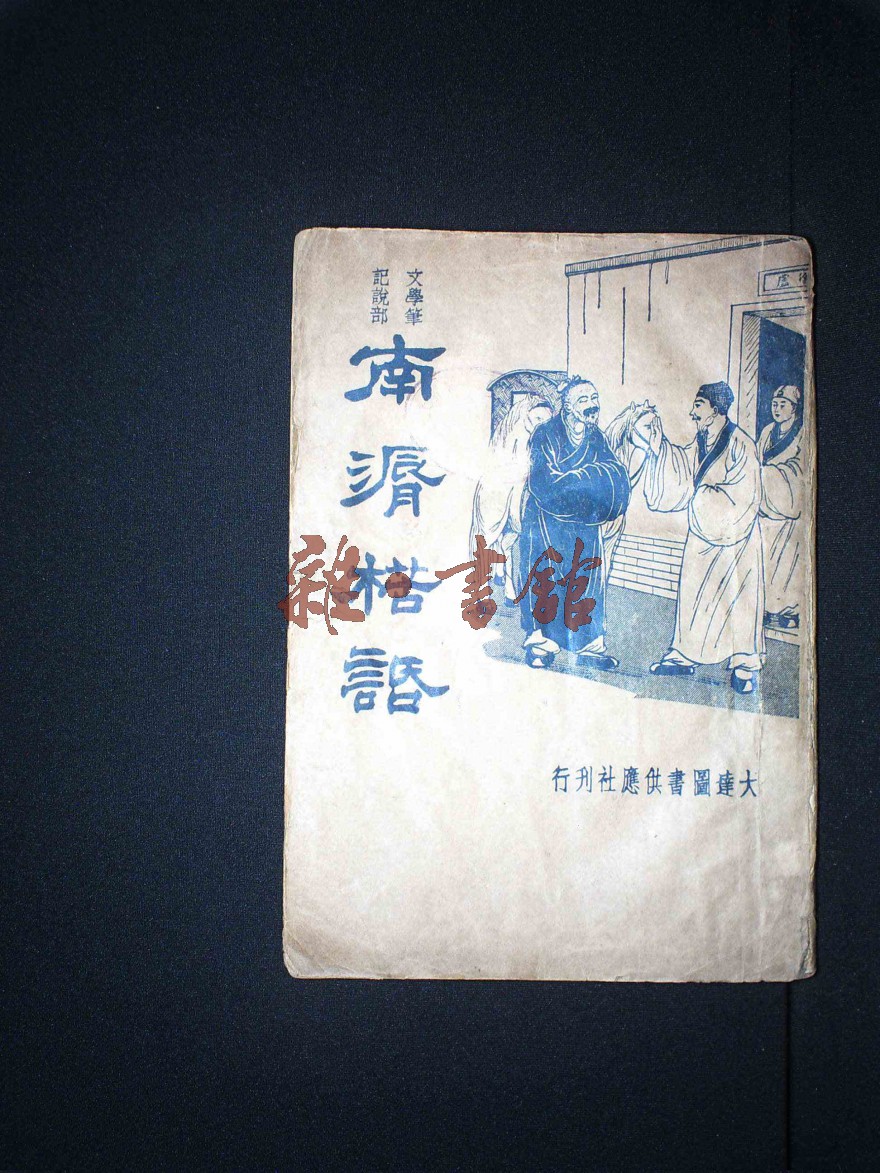 文學筆
記說部
南漘楛語
雜·書館
大達圖書供應社刊行